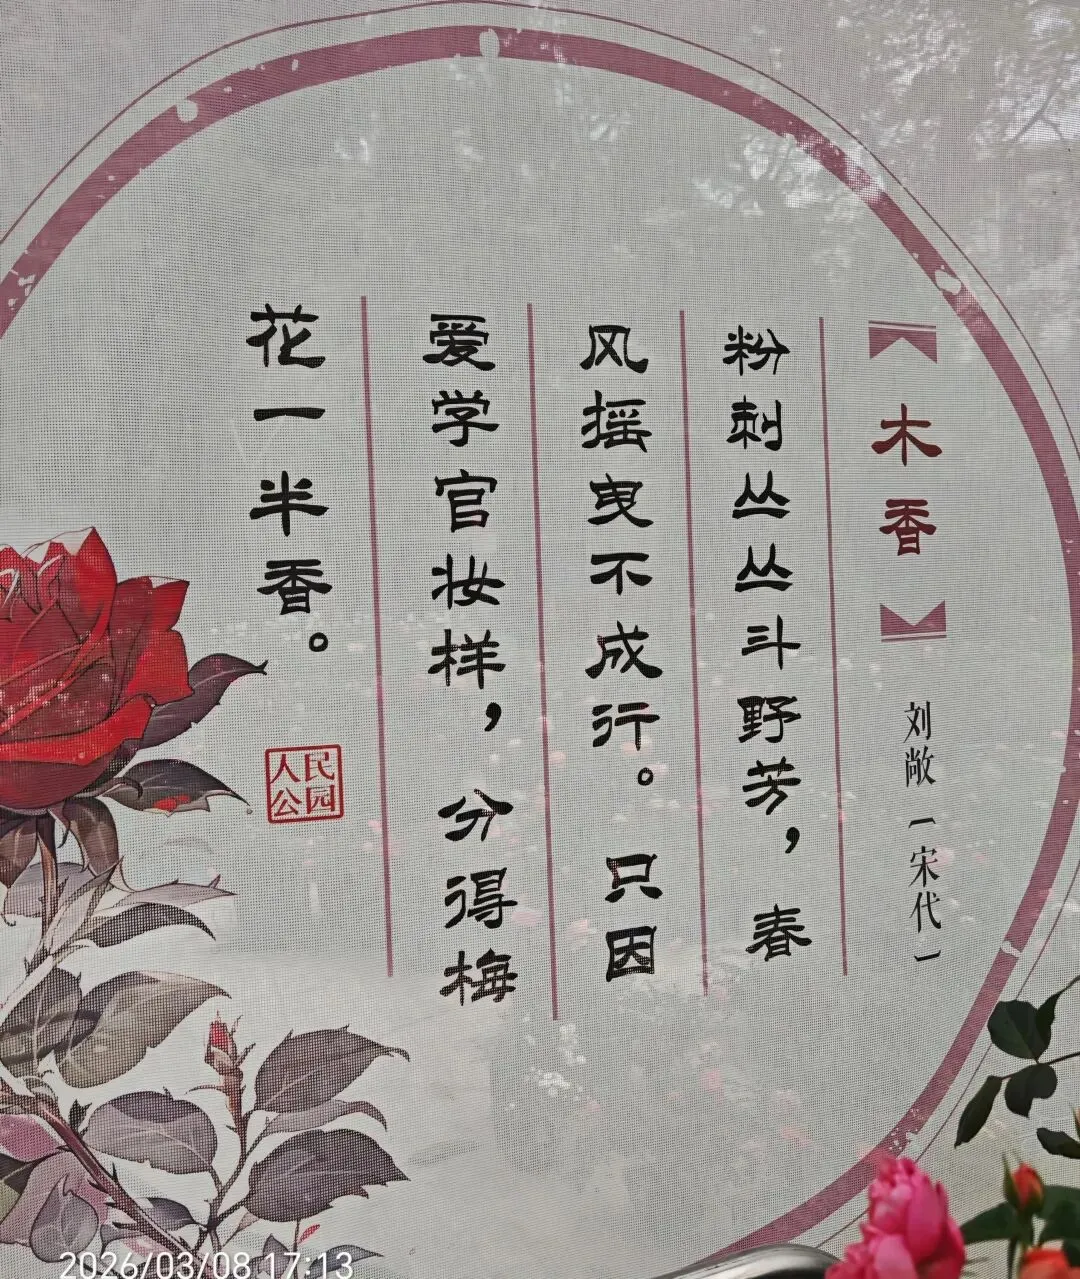 木香
刘敞（宋代）
粉刺丛丛斗野芳，春
风摇曳不成行。只因
爱学官妆样，分得梅
花一半香。
人民
公园
2026/03/08 17:13